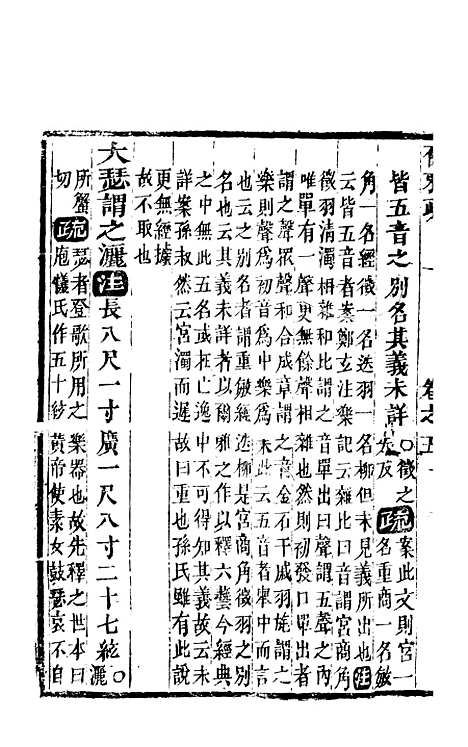 卷之五
皆五音之別名其義未詳○徵之矢反疏案此文則宮一名重商一名敏
角一名經徵一名迭羽一名柳但未見義所出也注
云皆五音者案鄭玄注樂記云雜比曰音謂宮商角
徵羽清濁相雜和比謂之音單出曰聲謂五聲之內
唯單有一聲更無餘聲相雜也然則初發口單出者
謂之聲眾聲和合成章謂之音金石干戚羽旄謂之
樂則聲為初音為中樂為末此云五音者舉中而言
也云之別名者謂重敏經迭柳是宮商角徵羽之別
名也云其義未詳者以爾雅之作以釋六藝今經典
之中無此五名或在亡逸中不可得知其義故云未
詳案孫叔然云宮濁而遲故曰重也孫氏雖有此說
更無經據
故不取也
大瑟謂之灑注長八尺一寸廣一尺八寸二十七絃○灑
所蟹切疏瑟者登歌所用之樂器也故先釋之世本曰庖犧氏作五十絃黃帝使素女鼓瑟哀不自